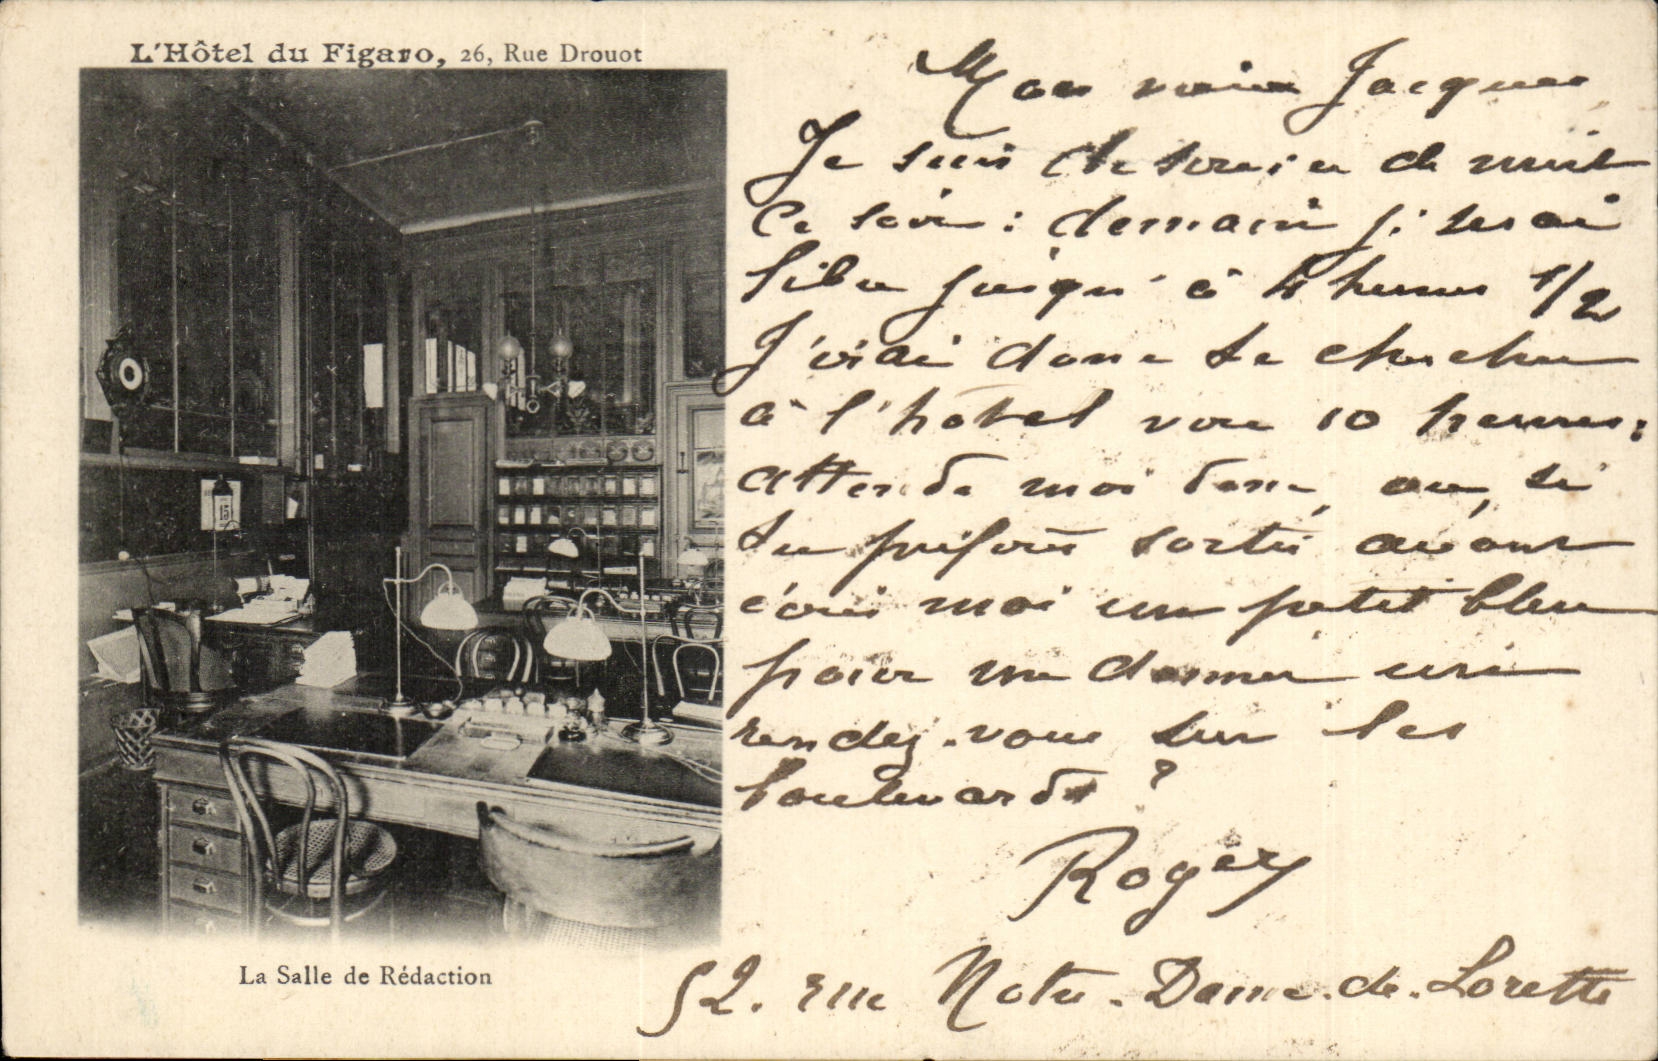 L'Hôtel du Figaro, 26, Rue Drouot
15
La Salle de Rédaction
Mon vieux Jacques,
Je suis de service de nuit
ce soir : demain je serai
libre jusqu'à 4 heures 1/2
J'irai donc te chercher
à l'hôtel vers 10 heures :
attends moi donc, ou, si
tu préfères sortir avant
écris moi un petit bleu
pour me donner un
rendez-vous sur les
boulevards ?
Roger
52. rue Notre-Dame-de-Lorette